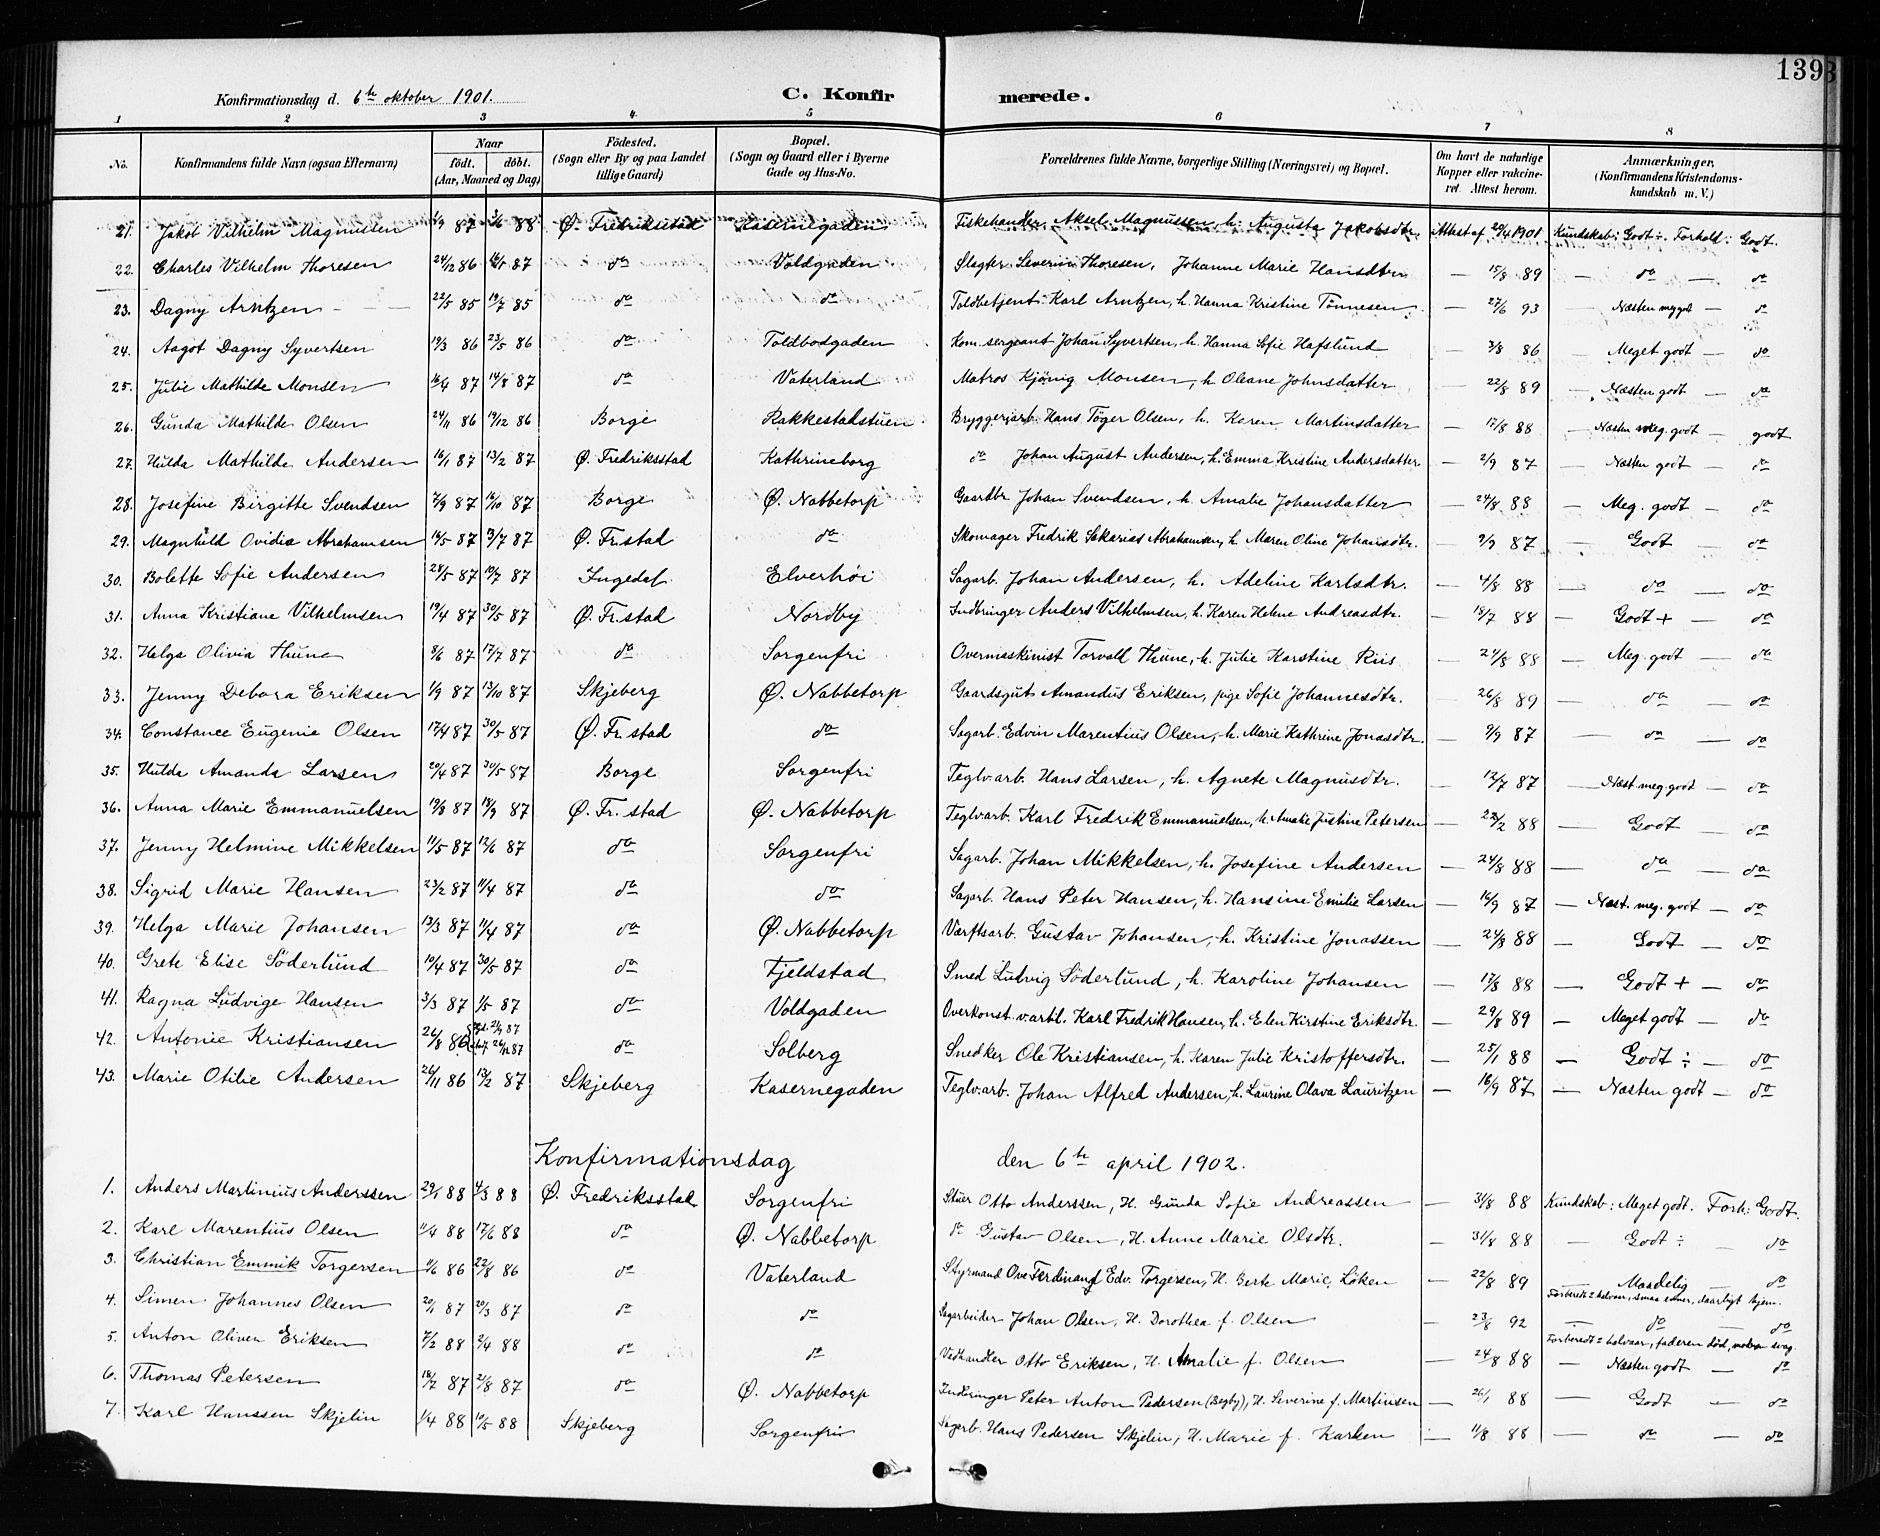 139
Konfirmationsdag d. 6te oktober 1901.
C. Konfirmerede.
1 2 3 4 5 6 7 8
No. | Konfirmandens fulde Navn (ogsaa Efternavn) | Naar födt. döbt. (Aar, Maaned og Dag) | Födested. (Sogn eller By og paa Landet tillige Gaard) | Bopæl. (Sogn og Gaard eller i Byerne Gade og Hus-No. | Forældrenes fulde Navne, borgerlige Stilling (Næringsvei) og Bopæl. | Om havt de naturlige Kopper eller vaccineret. Attest herom. | Anmærkninger, (Konfirmandens Kristendomskundskab m. V.)
21. Jakob Vilhelm Magnussen 1/9 87 3/6 88 Ø. Fredriksstad Kasernegaden Fiskehandler Aksel Magnussen, h. Augusta Jakobsdtr. Attest af 29/4 1901 Kundskab: Godt ÷. Forhold: Godt.
22. Charles Vilhelm Thoresen 24/12 86 87 do Voldgaden Slagter Severin Thoresen, Johanne Marie Hansdtr — 15/8 89 — do — do
23. Dagny Arntzen 22/5 85 19/7 85 do do Toldbetjent Karl Arntzen, h. Hanna Kristine Tönnesen — 27/6 93 — Næsten meg godt — do
24. Aagot Dagny Syvertsen 19/3 86 23/5 86 do Toldbodgaden Kom. sergeant Johan Syvertsen, h. Hanna Sofie Hafslund — 3/8 86 — Meget godt — do
25. Julie Mathilde Monsen 16/4 87 14/8 87 do Vaterland Matros Kjönig Monsen, h. Oleane Johnsdatter — 22/8 89 — Næsten godt — do
26. Gunda Mathilde Olsen 24/11 86 19/12 86 Borge Rakkestadstuen Bryggeriarb. Hans Töger Olsen, h. Karen Martinsdatter — 17/8 88 — Næsten meg. godt — godt
27. Hulda Mathilde Andersen 16/1 87 13/2 87 Ø. Fredriksstad Kathrineborg do Johan August Andersen, h. Emma Kristine Andersdatter — 2/9 87 — Næsten godt — do
28. Josefine Birgitte Svendsen 7/9 87 16/10 87 Borge Ø. Nabbetorp Gaardbr. Johan Svendsen, h. Amalie Johansdatter — 24/8 88 — Meg. godt — do
29. Magnhild Ovidia Abrahamsen 16/5 87 17/7 87 Ø. Fr.stad do Skomager Fredrik Sakarias Abrahamsen, h. Maren Oline Johansdtr. — 9/9 87 — Godt — do
30. Bolette Sofie Andersen 28/5 87 10/7 87 Ingedal Elverhöi Sagarb. Johan Andersen, h. Adeline Karlsdtr. — 4/8 88 — do — do
31. Anna Kristiane Vilhelmsen 19/4 87 30/5 87 Ø. Fr.stad Nordby Indbringer Anders Vilhelmsen, h. Karen Helene Andreasdtr. — 18/7 88 — Godt + — do
32. Helga Olivia Thune 8/6 87 17/7 87 do Sorgenfri Overmaskinist Torvall Thune, h. Julie Karstine Riis — 24/8 88 — Meg. godt — do
33. Jenny Debora Eriksen 1/9 87 13/10 87 Skjeberg Ø. Nabbetorp Gaardsgut Amandus Eriksen, pige Sofie Johannesdtr. — 26/8 89 — do — do
34. Constance Eugenie Olsen 17/4 87 30/5 87 Ø. Fr.stad do Sagarb. Edvin Marentius Olsen, h. Marie Kathrine Jonasdtr. — 9/9 87 — do — do
35. Hulda Amanda Larsen 20/4 87 30/5 87 Borge Sorgenfri Teglv.arb. Hans Larsen, h. Agnete Magnusdtr. — 12/7 87 — Næst. meg. godt — do
36. Anna Marie Emmanuelsen 19/8 87 18/9 87 Ø. Fr.stad Ø. Nabbetorp Teglv.arb. Karl Fredrik Emmanuelsen, h. Amalie Justine Petersen — 23/2 88 — Godt — do
37. Jenny Helmine Mikkelsen 11/5 87 12/6 87 do Sorgenfri Sagarb. Johan Mikkelsen, h. Josefine Andersen — 24/8 88 — do — do
38. Sigrid Marie Hansen 23/2 87 11/4 87 do do Sagarb. Hans Peter Hansen, h. Hansine Emilie Larsen — 16/9 87 — Næst. meg. godt — do
39. Helga Marie Johansen 13/3 87 11/4 87 do Ø. Nabbetorp Værftsarb. Gustav Johansen, h. Kristine Jonassen — 24/8 88 — Godt — do
40. Grete Elise Söderlund 10/4 87 30/5 87 do Fjeldstad Smed Ludvig Söderlund, h. Karoline Johansen — 17/8 88 — Godt + — do
41. Ragna Ludvige Hansen 3/3 87 1/5 87 do Voldgaden Overkonst. vartl. Karl Fredrik Hansen, h. Elen Kirstine Eriksdtr. — 29/8 89 — Meget godt — do
42. Antonie Kristiansen 26/8 86 87 26/12 87 do Solberg Snedker Ole Kristiansen, h. Karen Julie Kristoffersdtr. — 25/1 88 — Godt ÷ — do
43. Marie Otilie Andersen 26/11 86 13/2 87 Skjeberg Kasernegaden Teglv.arb. Johan Alfred Andersen, h. Laurine Olava Lauritzen — 16/9 87 — Næsten godt — do
Konfirmationsdag den 6te april 1902.
1. Anders Martinius Anderssen 29/1 88 4/3 88 Ø. Fredriksstad Sorgenfri Stuer Otto Anderssen, H. Gunda Sofie Andreassen — 31/8 88 Kundskab: Meget godt. Forh: Godt.
2. Karl Marentius Olsen 11/4 88 17/6 88 do Ø. Nabbetorp do Gustav Olsen, H. Anne Marie Olsdtr. — 31/8 88 — Godt ÷ — do
3. Christian Emmik Torgersen 11/6 86 22/8 86 do Vaterland Styrmand Ove Ferdinand Edv. Torgersen, H. Berte Marie Löken — 22/8 89 — Maadelig — do
Forberedt 2 halvaar, smaa evner, daarligt hjem.
4. Simen Johannes Olsen 20/1 87 20/3 87 do do Sagarbeider Johan Olsen, H. Dorothea f. Olsen — 23/8 92 — do — do
Forberedt 2 halvaar, faderen död, moderen svag.
5. Anton Oliven Eriksen 7/2 88 2/4 88 do do Vedhandler Otto Eriksen, H. Amalie f. Olsen — 24/8 88 — Næsten godt — do
6. Thomas Petersen 18/7 87 21/8 87 do Ø. Nabbetorp Indbringer Peter Anton Pedersen (Begby), H. Severine f. Martinsen — 26/1 88 — Godt — do
7. Karl Hanssen Skjelin 1/4 88 10/5 88 Skjeberg Sorgenfri Sagarb. Hans Pedersen Skjelin, H. Marie f. Karlsen — 11/8 88 — do — do